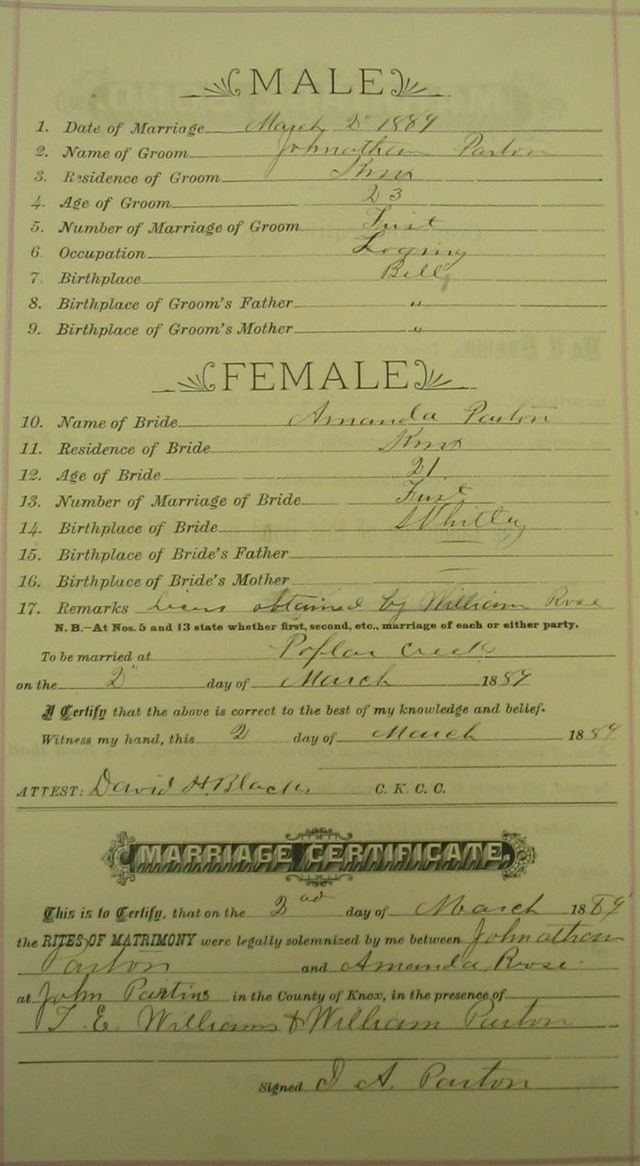 MALE
1. Date of Marriage March 2" 1889
2. Name of Groom Johnathan Parton
3. Residence of Groom Knox
4. Age of Groom 23
5. Number of Marriage of Groom First
6 Occupation Loging
7. Birthplace Bell
8. Birthplace of Groom's Father "
9. Birthplace of Groom's Mother "
FEMALE
10. Name of Bride Amanda Parton
11. Residence of Bride Knox
12. Age of Bride 21
13. Number of Marriage of Bride First
14. Birthplace of Bride Whitley
15. Birthplace of Bride's Father
16. Birthplace of Bride's Mother
17. Remarks obtained by William Rose
N. B.—At Nos. 5 and 13 state whether first, second, etc., marriage of each or either party.
To be married at Poplar Creek
on the 2" day of March 1889
I Certify that the above is correct to the best of my knowledge and belief.
Witness my hand, this 2 day of March 1889
ATTEST: David H. Black C. K. C. C.
MARRIAGE CERTIFICATE.
This is to Certify, that on the 2nd day of March 1889
the RITES OF MATRIMONY were legally solemnized by me between Johnathan
Parton and Amanda Roose
at John Partins in the County of Knox, in the presence of
T. E. Williams & William Parton
Signed J A. Parton